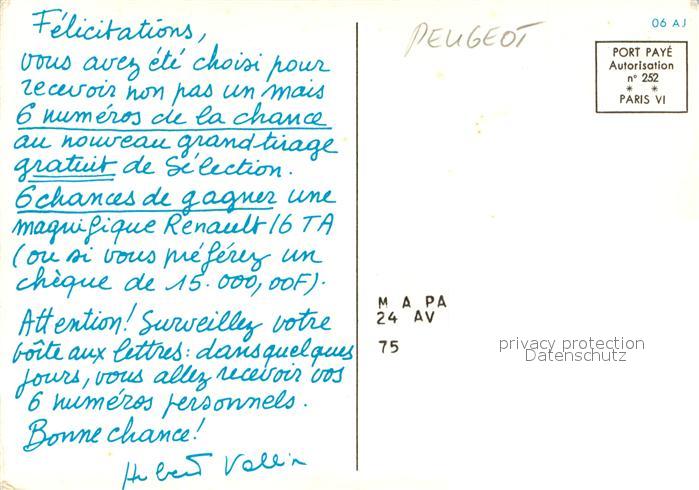 Félicitations,
vous avez été choisi pour
recevoir non pas un mais
6 numéros de la chance
au nouveau grand tirage
gratuit de Sélection.
6 chances de gagner une
magnifique Renault 16 TA
(ou si vous préférez un
chèque de 15.000,00F).
Attention! Surveillez votre
boîte aux lettres: dans quelques
jours, vous allez recevoir vos
6 numéros personnels.
Bonne chance!
PEUGEOT
06 AJ
PORT PAYÉ
Autorisation
n° 252
* *
PARIS VI
M A PA
24 AV
75
privacy protection
Datenschutz